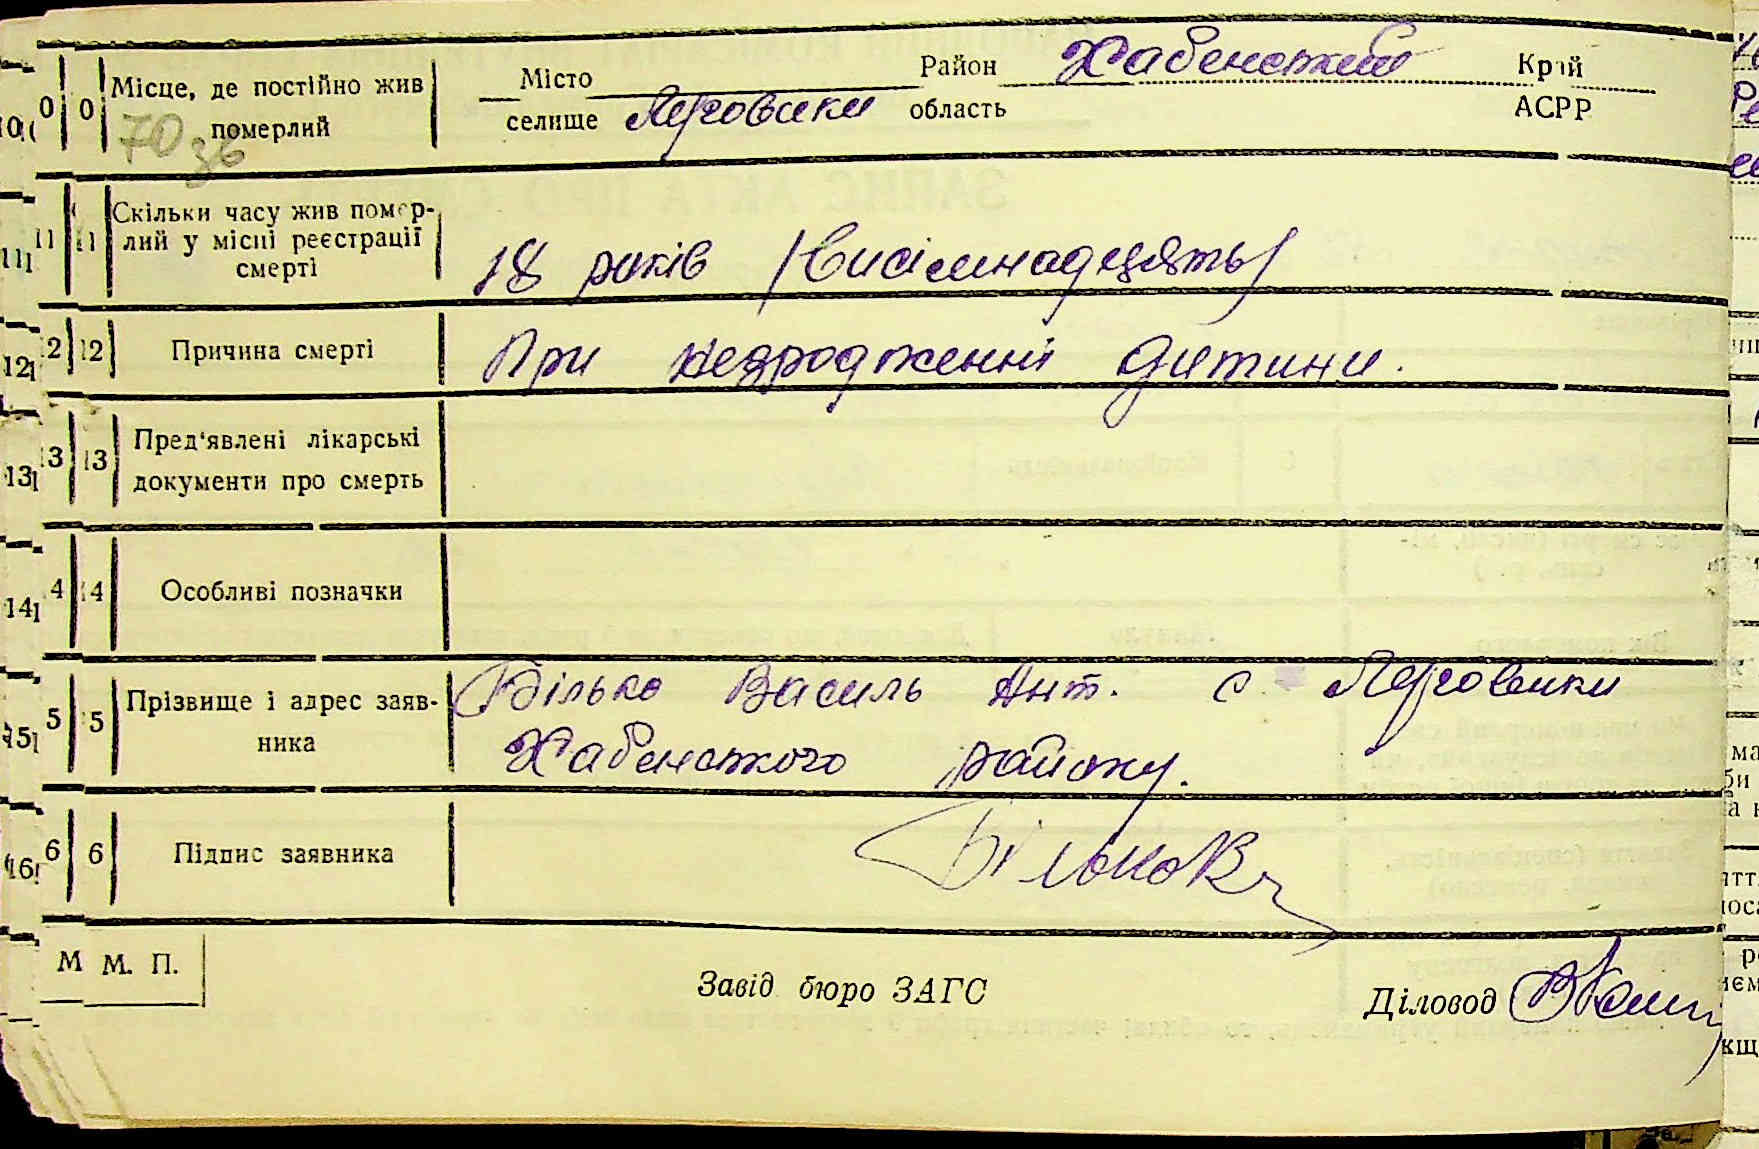 Місце, де постійно жив померлий
70 зв
Місто Район Хабенський Край
селище Яєровики область АСРР
11 Скільки часу жив помер-лий у місці реєстрації смерті
18 років /вісімнадцять/
12 Причина смерті
При недродженні дитини.
13 Пред'явлені лікарські документи про смерть
14 Особливі позначки
15 Прізвище і адрес заяв-ника
Білько Василь Ант. с
Хабенського району.
16 Підпис заявника
Білько В
М. П.
Завід бюро ЗАГС
Діловод